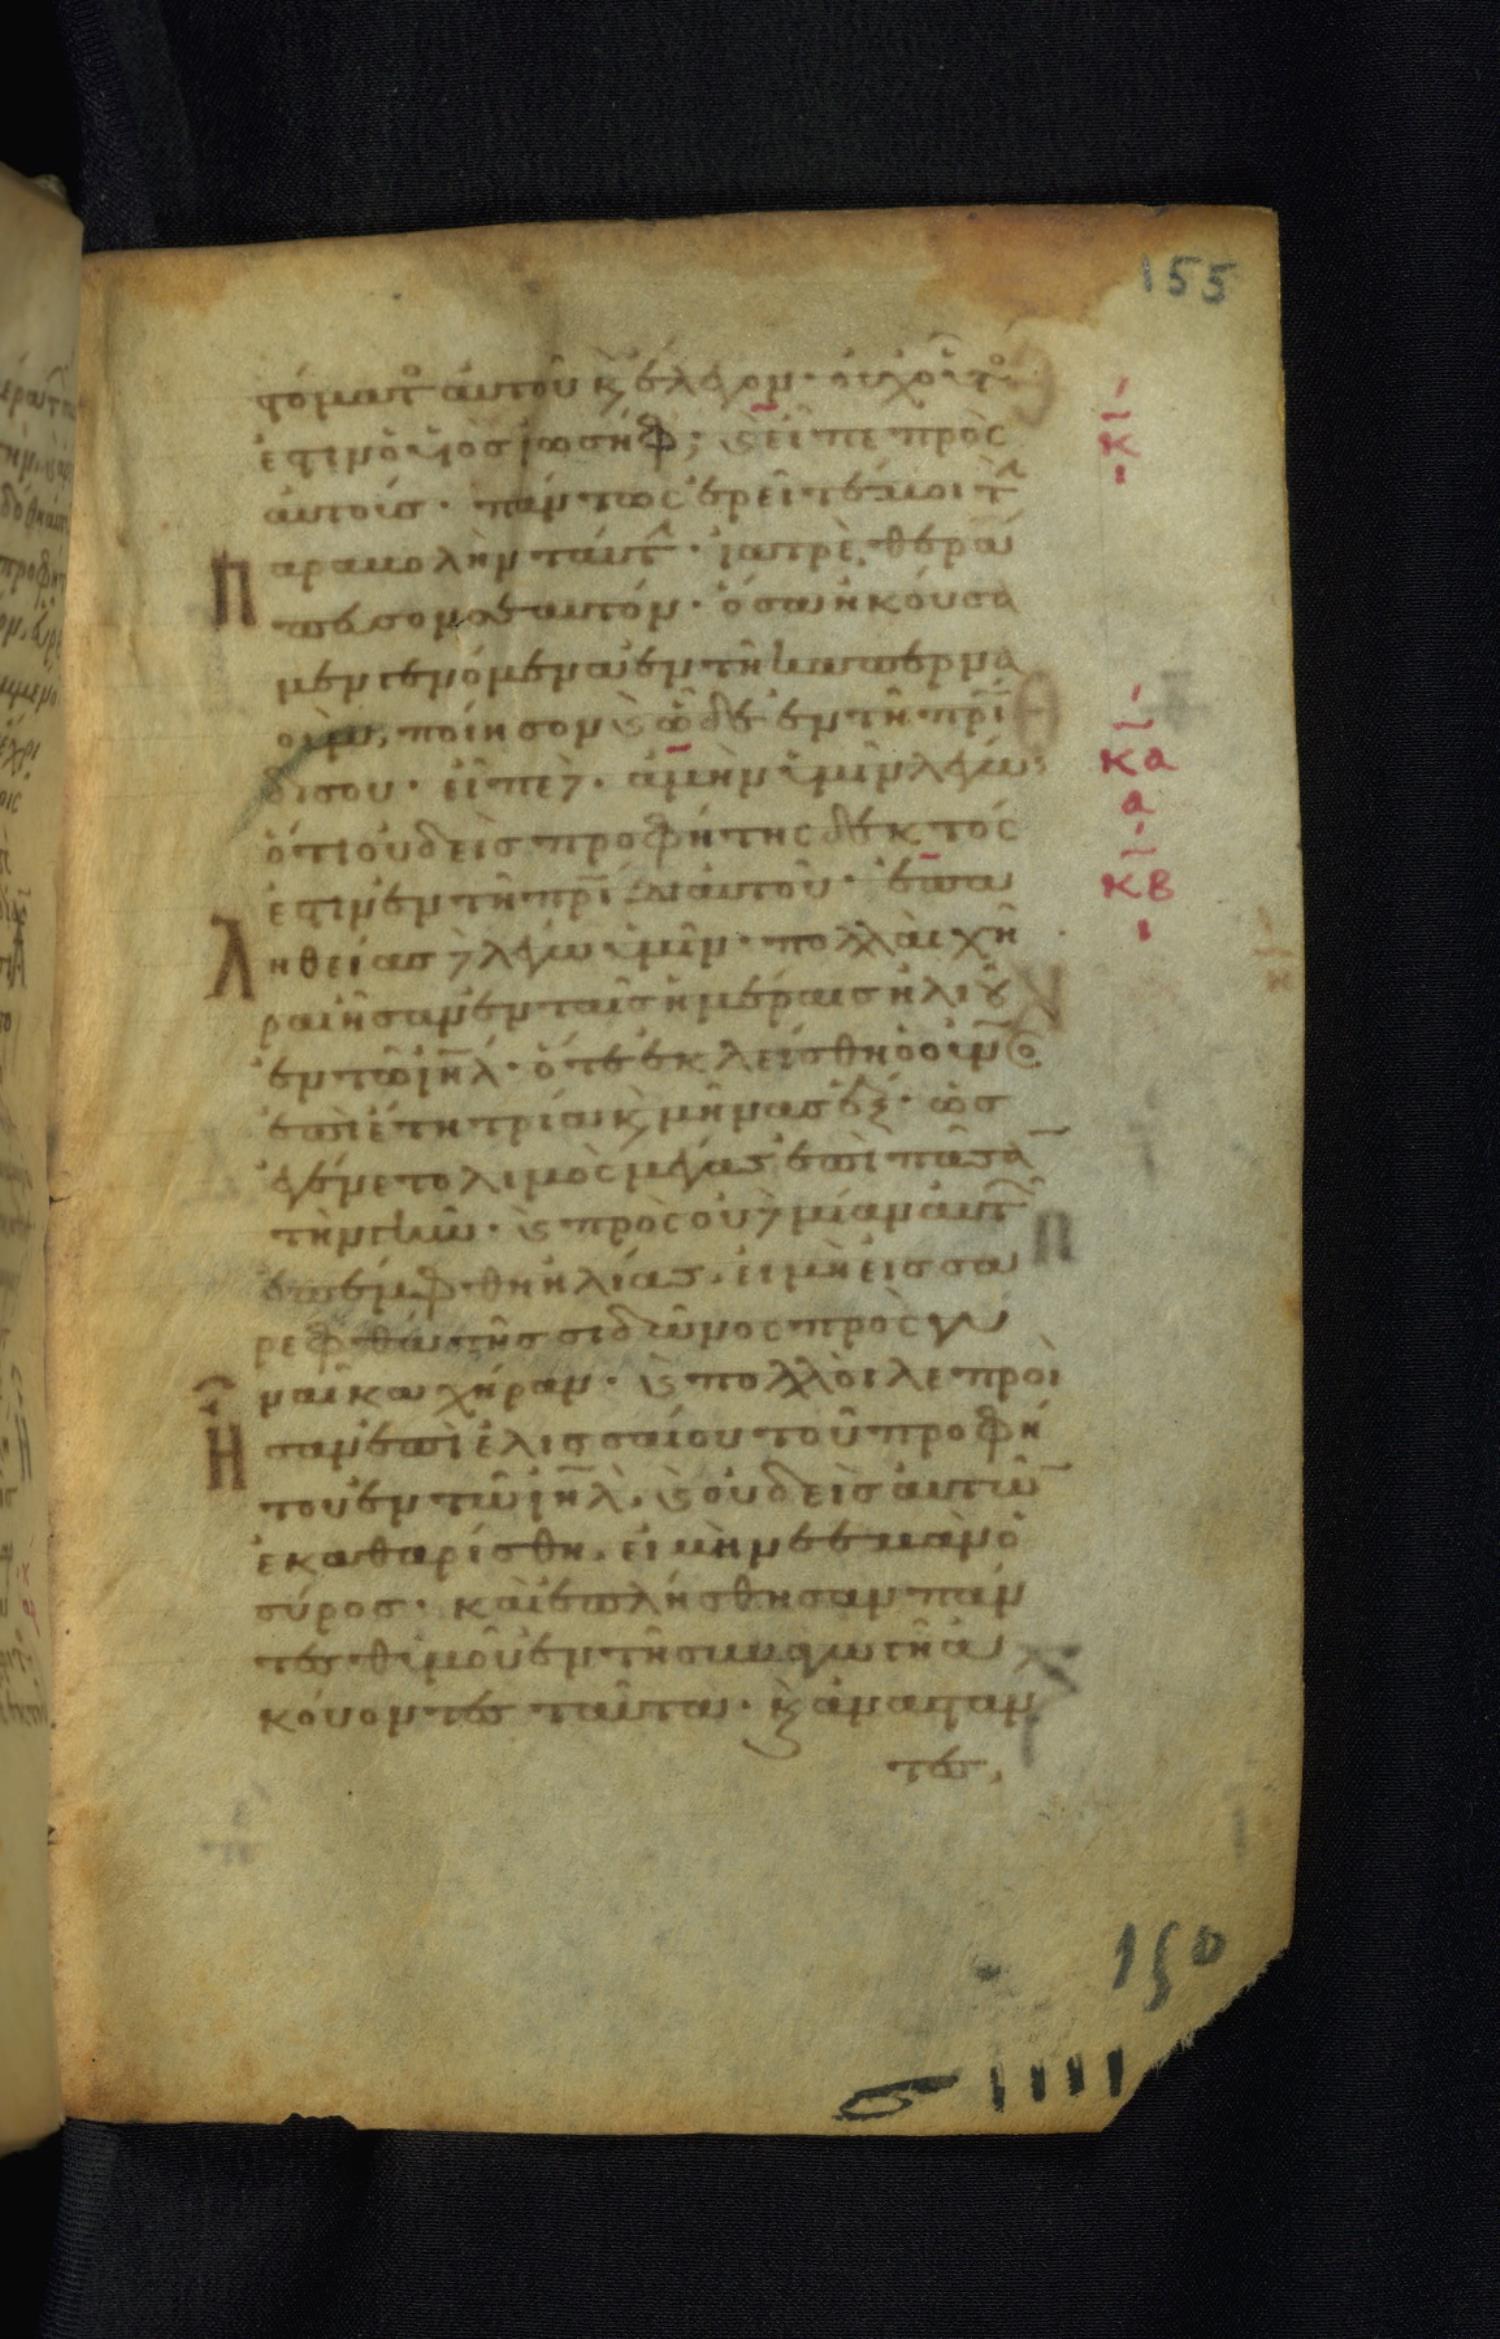 155
τόματο αὐτοῦ κ̀ ἔλεγον· οὐχ οὗτος
κ
ἐστιν ὁ υἱὸς ἰωσήφ; κ̀ εἶπε πρὸς
αὐτούς· πάντως ἐρεῖτέ μοι τὴν
παραβολὴν ταύτην· ἰατρὲ, θερά
πευσον σεαυτόν· ὅσα ἠκούσα
μεν γενόμενα ἐν τῆ καπερνα
οὺμ, ποίησον κ̀ ὧδε ἐν τῆ πρι
κα
α
δι σου· εἶπε δὲ· ἀμὴν ὑμῖν λέγω
ὅτι οὐδεὶς προφήτης δεκτός
ἐστιν ἐν τῆ πρίδι αὐτοῦ· ἐπα
κβ
ι
ληθείας δὲ λέγω ὑμῖν· πολλαὶ χῆ
ραι ἦσαν ἐν ταῖς ἡμέραις ἡλιοὺ
ἐν τῶ ιηλ· ὅτε ἐκλείσθη ὁ οὐνος
ἐπὶ ἔτη τρία κ̀ μῆνας ἕξ· ὡς
ἐγένετο λιμὸς μέγας ἐπὶ πᾶσαν
τὴν γῆν· κ̀ πρὸς οὐδεμίαν αὐτῶν
ἐπέμφθη ἡλίας, εἰ μὴ εἰς σα
ρεφθὰ τῆς σιδῶνος πρὸς γυ
ναῖκα χήραν· κ̀ πολλοὶ λεπροὶ
ἦσαν ἐπὶ ἐλισσαίου τοῦ προφή
του ἐν τῶ ιηλ, κ̀ οὐδεὶς αὐτῶν
ἐκαθαρίσθη, εἰ μὴ νεεμὰν ὁ
σύρος· καὶ ἐπλήσθησαν πάν
τες θυμοῦ ἐν τῆ συναγωγῆ ἀ
κούοντες ταῦτα· κ̀ ἀναστάν
τες,
150